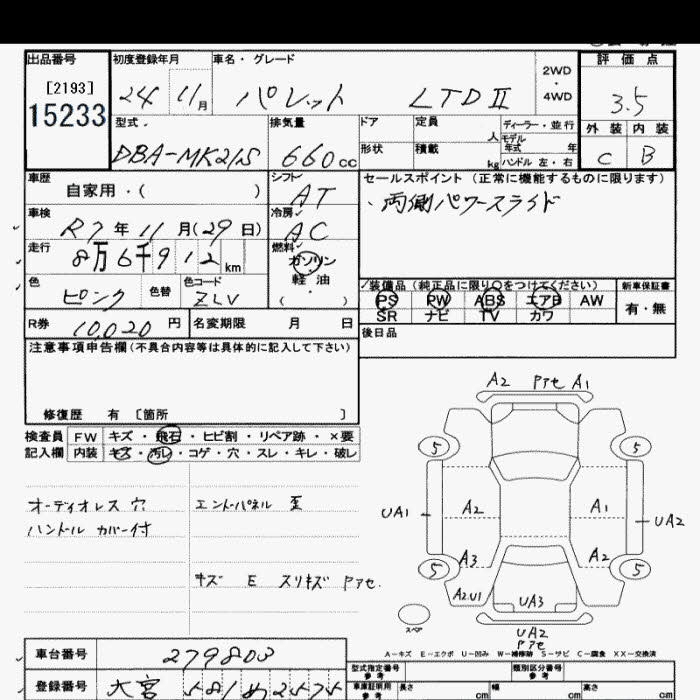 出品番号
[2193]
15233
初度登録年月
24 11月
車名・グレード
パレット LTDⅡ
2WD
・
4WD
評価点
3.5
外装 内装
C B
型式
DBA-MK21S
排気量
660cc
ドア
定員
人
形状
積載
kg
ディーラー・並行
モデル
年式 年
ハンドル 左・右
車歴
自家用・( )
シフト
AT
車検
R7年11月(29日)
冷房
AC
走行
8万6千912km
燃料
ガソリン
軽油
( )
色
ピンク
色替
色コード
ZLV
R券
10,020円
名変期限 月 日
セールスポイント (正常に機能するものに限ります)
・両側パワースライド
装備品 (純正品に限り○をつけてください)
PS PW ABS エアB AW
SR ナビ TV カワ
新車保証書
有・無
後日品
注意事項申告欄(不具合内容等は具体的に記入して下さい)
修復歴 有 〔箇所 〕
検査員
記入欄
FW キズ・飛石・ヒビ割・リペア跡・×要
内装 キズ・汚レ・コゲ・穴・スレ・キレ・破レ
オーディオレス 穴
ハンドル カバー付
エンドパネル 歪
キズ E スリキズ Pアセ.
A2 Pアセ A1
5 5
UA1 A2 A1 UA2
A3 A2
5 5
A2.U1 UA3
スペア
UA2
Pアセ
A－キズ E－エクボ U－凹み W－補修跡 S－サビ C－腐食 XX－交換済
車台番号
279803
登録番号
大宮 581 め 2474
型式指定番号
参考
類別区分番号
参考
車庫証明用
参考
長さ cm
幅 cm
高さ cm